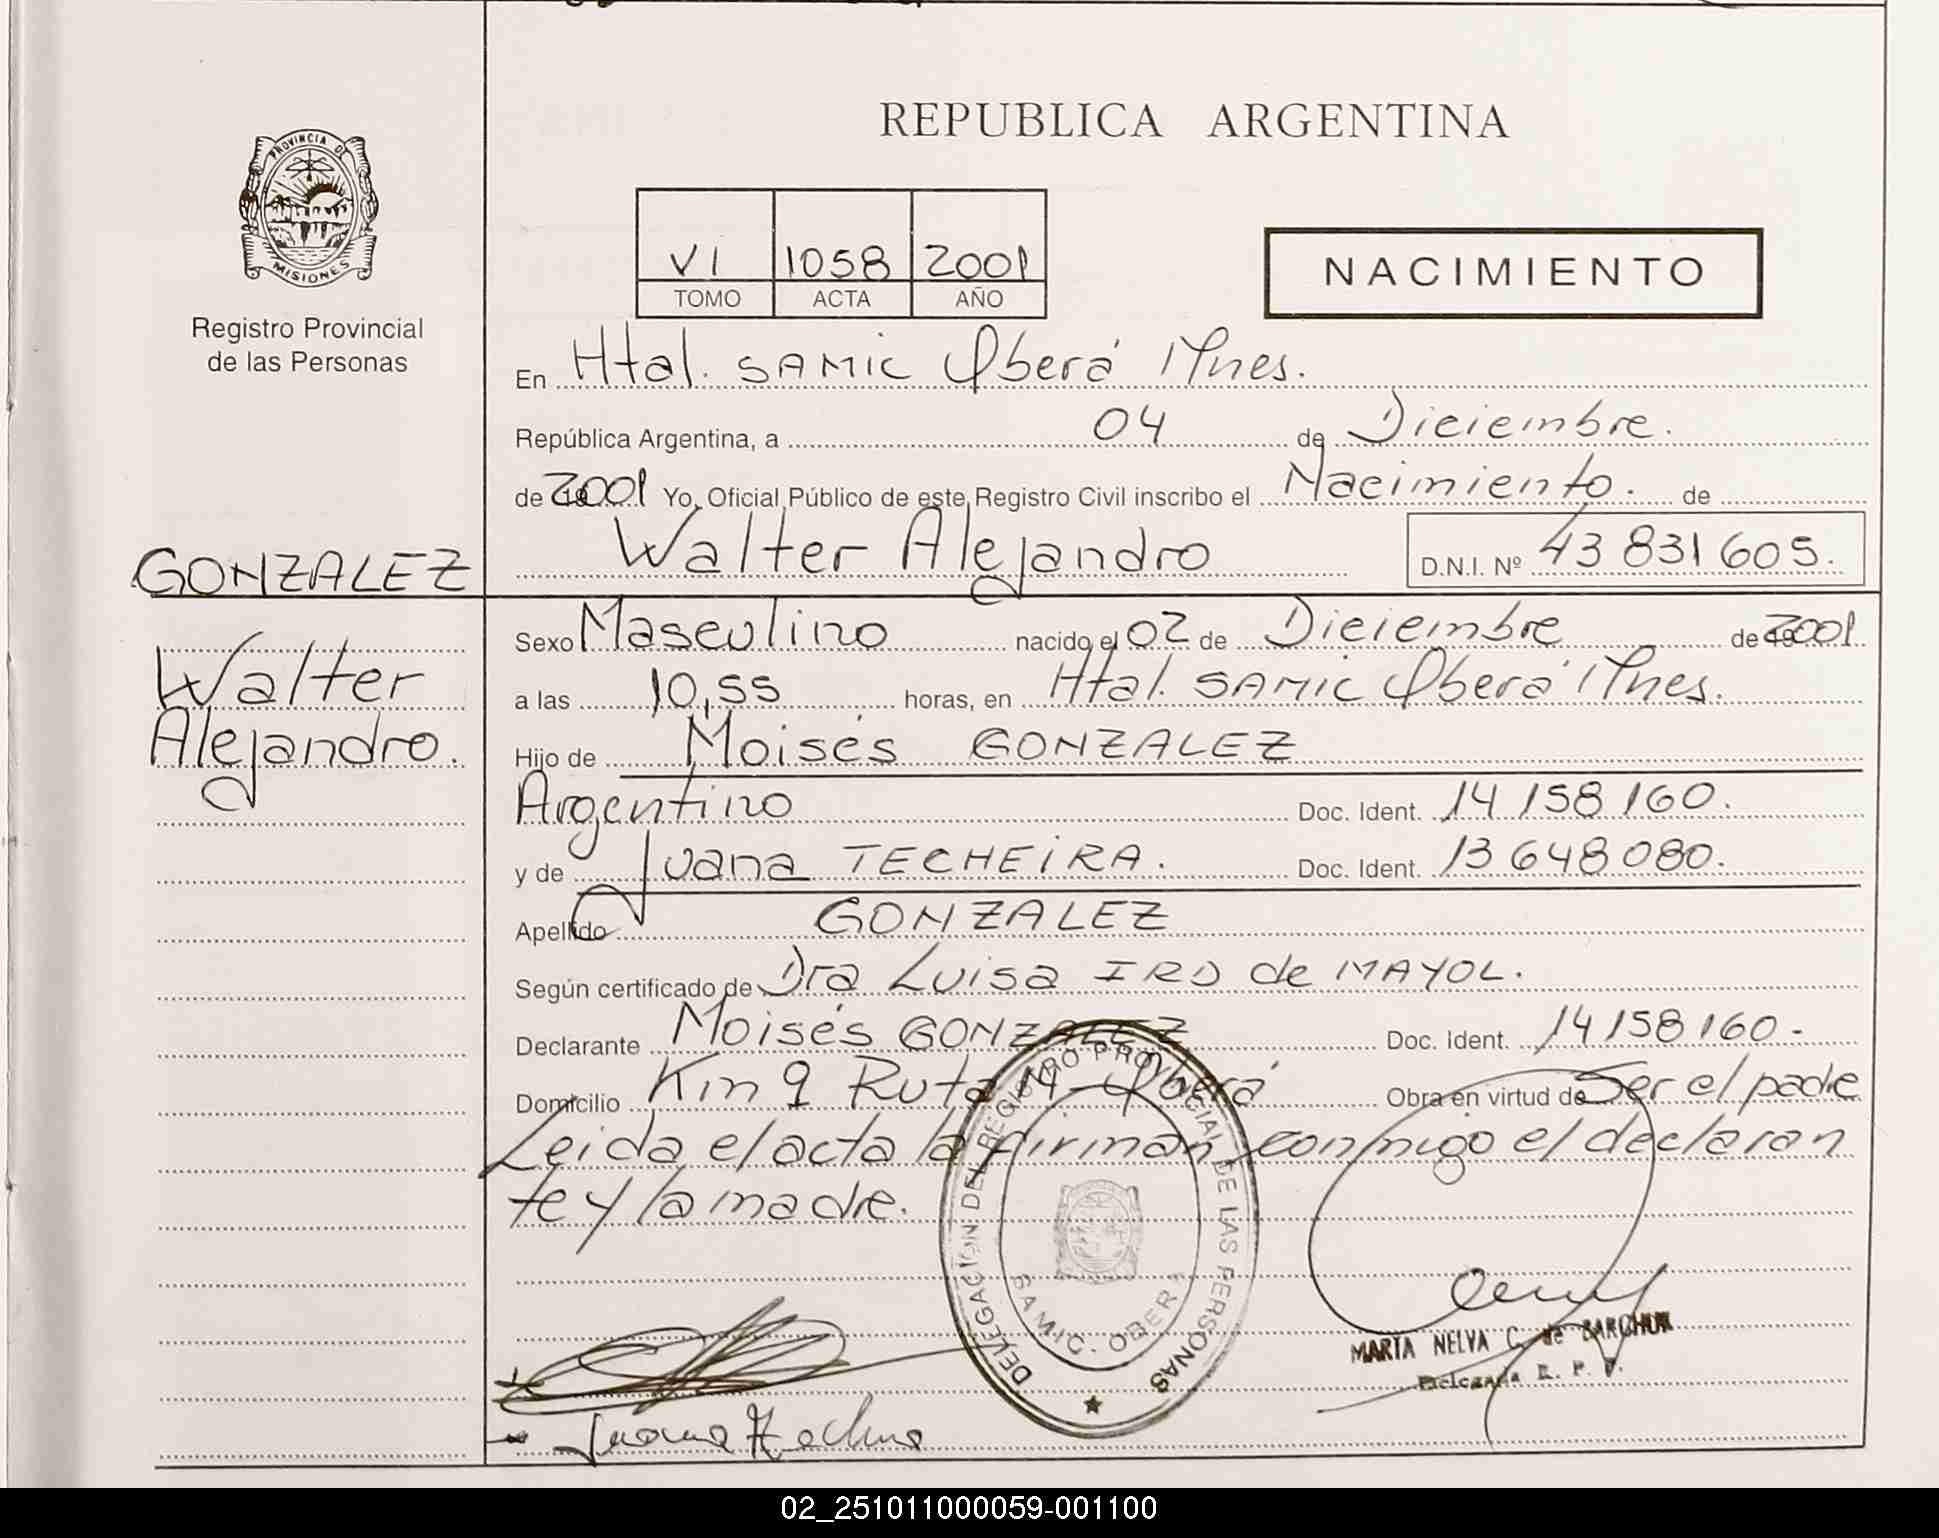 REPUBLICA ARGENTINA
PROVINCIA DE
MISIONES
Registro Provincial
de las Personas
VI 1058 2001
TOMO ACTA AÑO
NACIMIENTO
En Htal. SAMIC Oberá Mnes.
República Argentina, a 04 de Diciembre.
de 2001 Yo, Oficial Público de este Registro Civil inscribo el Nacimiento. de
Walter Alejandro D.N.I. Nº 43 831 605.
GONZALEZ
Walter
Alejandro.
Sexo Masculino nacido el 02 de Diciembre de 2001
a las 10,55 horas, en Htal. SAMIC Oberá Mnes.
Hijo de Moisés GONZALEZ
Argentino Doc. Ident. 14 158 160.
y de Juana TECHEIRA. Doc. Ident. 13 648 080.
Apellido GONZALEZ
Según certificado de Dra Luisa IRO de MAYOL.
Declarante Moisés GONZALEZ Doc. Ident. 14 158 160-
Domicilio Km 9 Ruta 14 - Oberá Obra en virtud de Ser el padre
Leida el acta la firman conmigo el declaran
te y la madre.
DELEGACIÓN DEL REGISTRO PROVINCIAL DE LAS PERSONAS
SAMIC - OBERA
MARTA NELVA C. de BARCHUK
Delegada R. P. P.
Juana
02_251011000059-001100